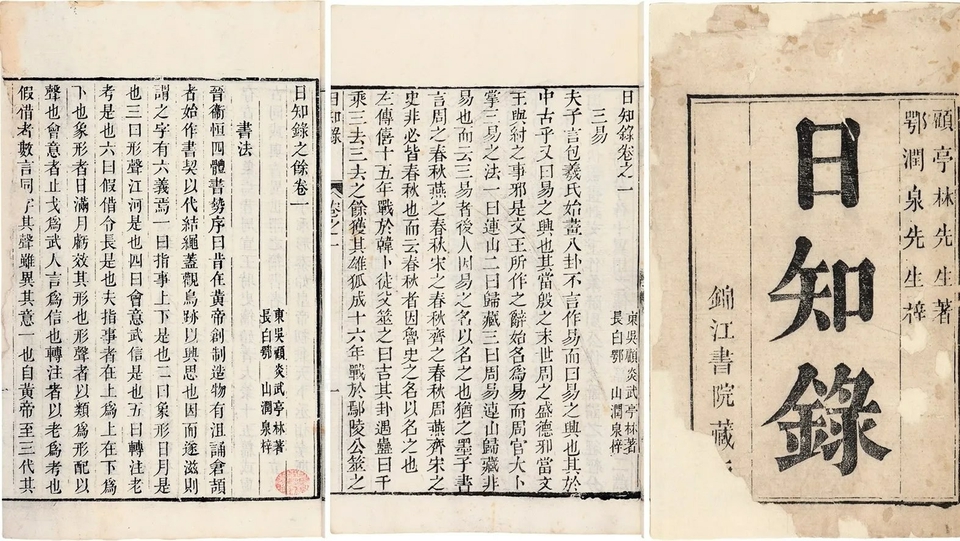 顧亭林先生著
鄂潤泉先生梓
日知錄
錦江書院藏
日知錄卷之一
東吳顧炎武亭林著
長白鄂山潤泉梓
三易
夫子言包羲氏始畫八卦不言作易而曰易之興也其於
中古乎又曰易之興也其當殷之末世周之盛德邪當文
王與紂之事邪是文王所作之辭始名爲易而周官大卜
掌三易之法一曰連山二曰歸藏三曰周易連山歸藏非
易也而云三易者後人因易之名以名之也猶之墨子書
言周之春秋燕之春秋宋之春秋齊之春秋周燕齊宋之
史非必皆春秋也而云春秋者因魯史之名以名之也
左傳僖十五年戰於韓卜徒父筮之曰吉其卦遇蠱曰千
乘三去三去之餘獲其雄狐成十六年戰於鄢陵公筮之
日知錄 卷之一 一
日知錄之餘卷一
東吳顧炎武亭林著
長白鄂山潤泉梓
書法
晉衞恒四體書勢序曰昔在黃帝創制造物有沮誦倉頡
者始作書契以代結繩蓋觀鳥跡以興思也因而遂滋則
謂之字有六義焉一曰指事上下是也二曰象形日月是
也三曰形聲江河是也四曰會意武信是也五曰轉注老
考是也六曰假借令長是也夫指事者在上爲上在下爲
下也象形者日滿月虧效其形也形聲者以類爲形配以
聲也會意者止戈爲武人言爲信也轉注者以老爲考也
假借者數言同字其聲雖異其意一也自黃帝至三代其